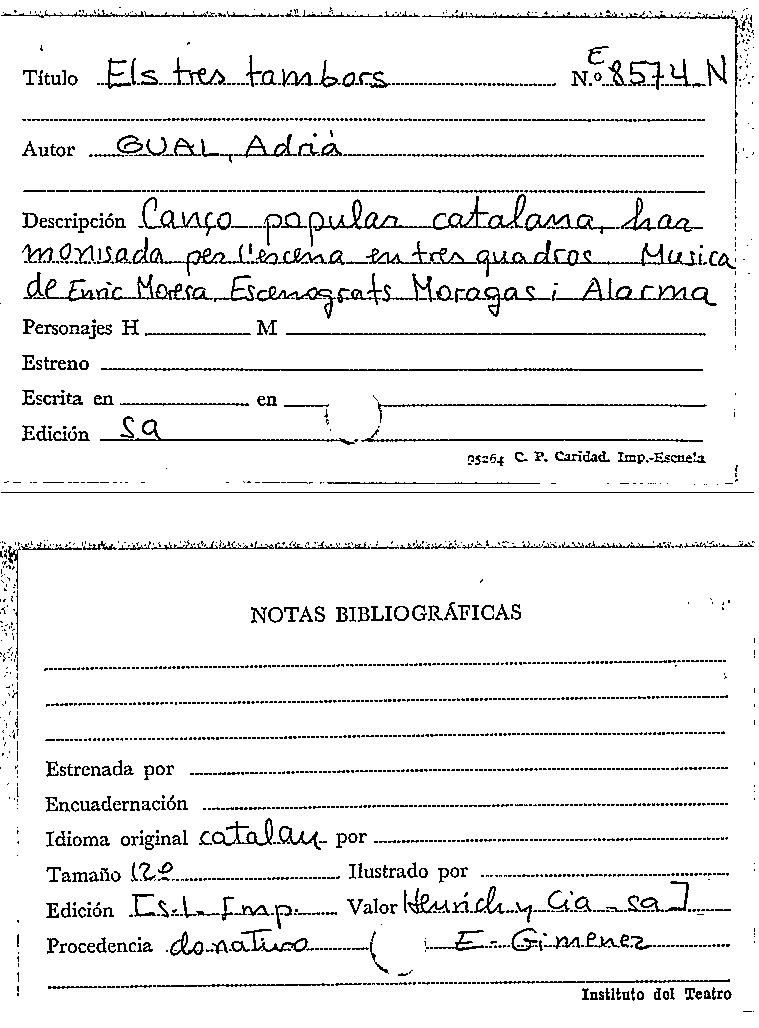 Título Els tres tambors N.º E 8574 N
Autor GUAL, Adrià
Descripción Canço popular catalana, har
monisada per l'escena en tres quadros Musica
de Enric Morera, Escenografs Moragas i Alarma
Personajes H M
Estreno
Escrita en en
Edición sa
05264 C. P. Caridad. Imp.-Escuela
NOTAS BIBLIOGRÁFICAS
Estrenada por
Encuadernación
Idioma original catalan por
Tamaño 12º Ilustrado por
Edición [s.l. Imp. Valor Henrich y Cia - sa]
Procedencia donativo E. Gimenez
Instituto del Teatro